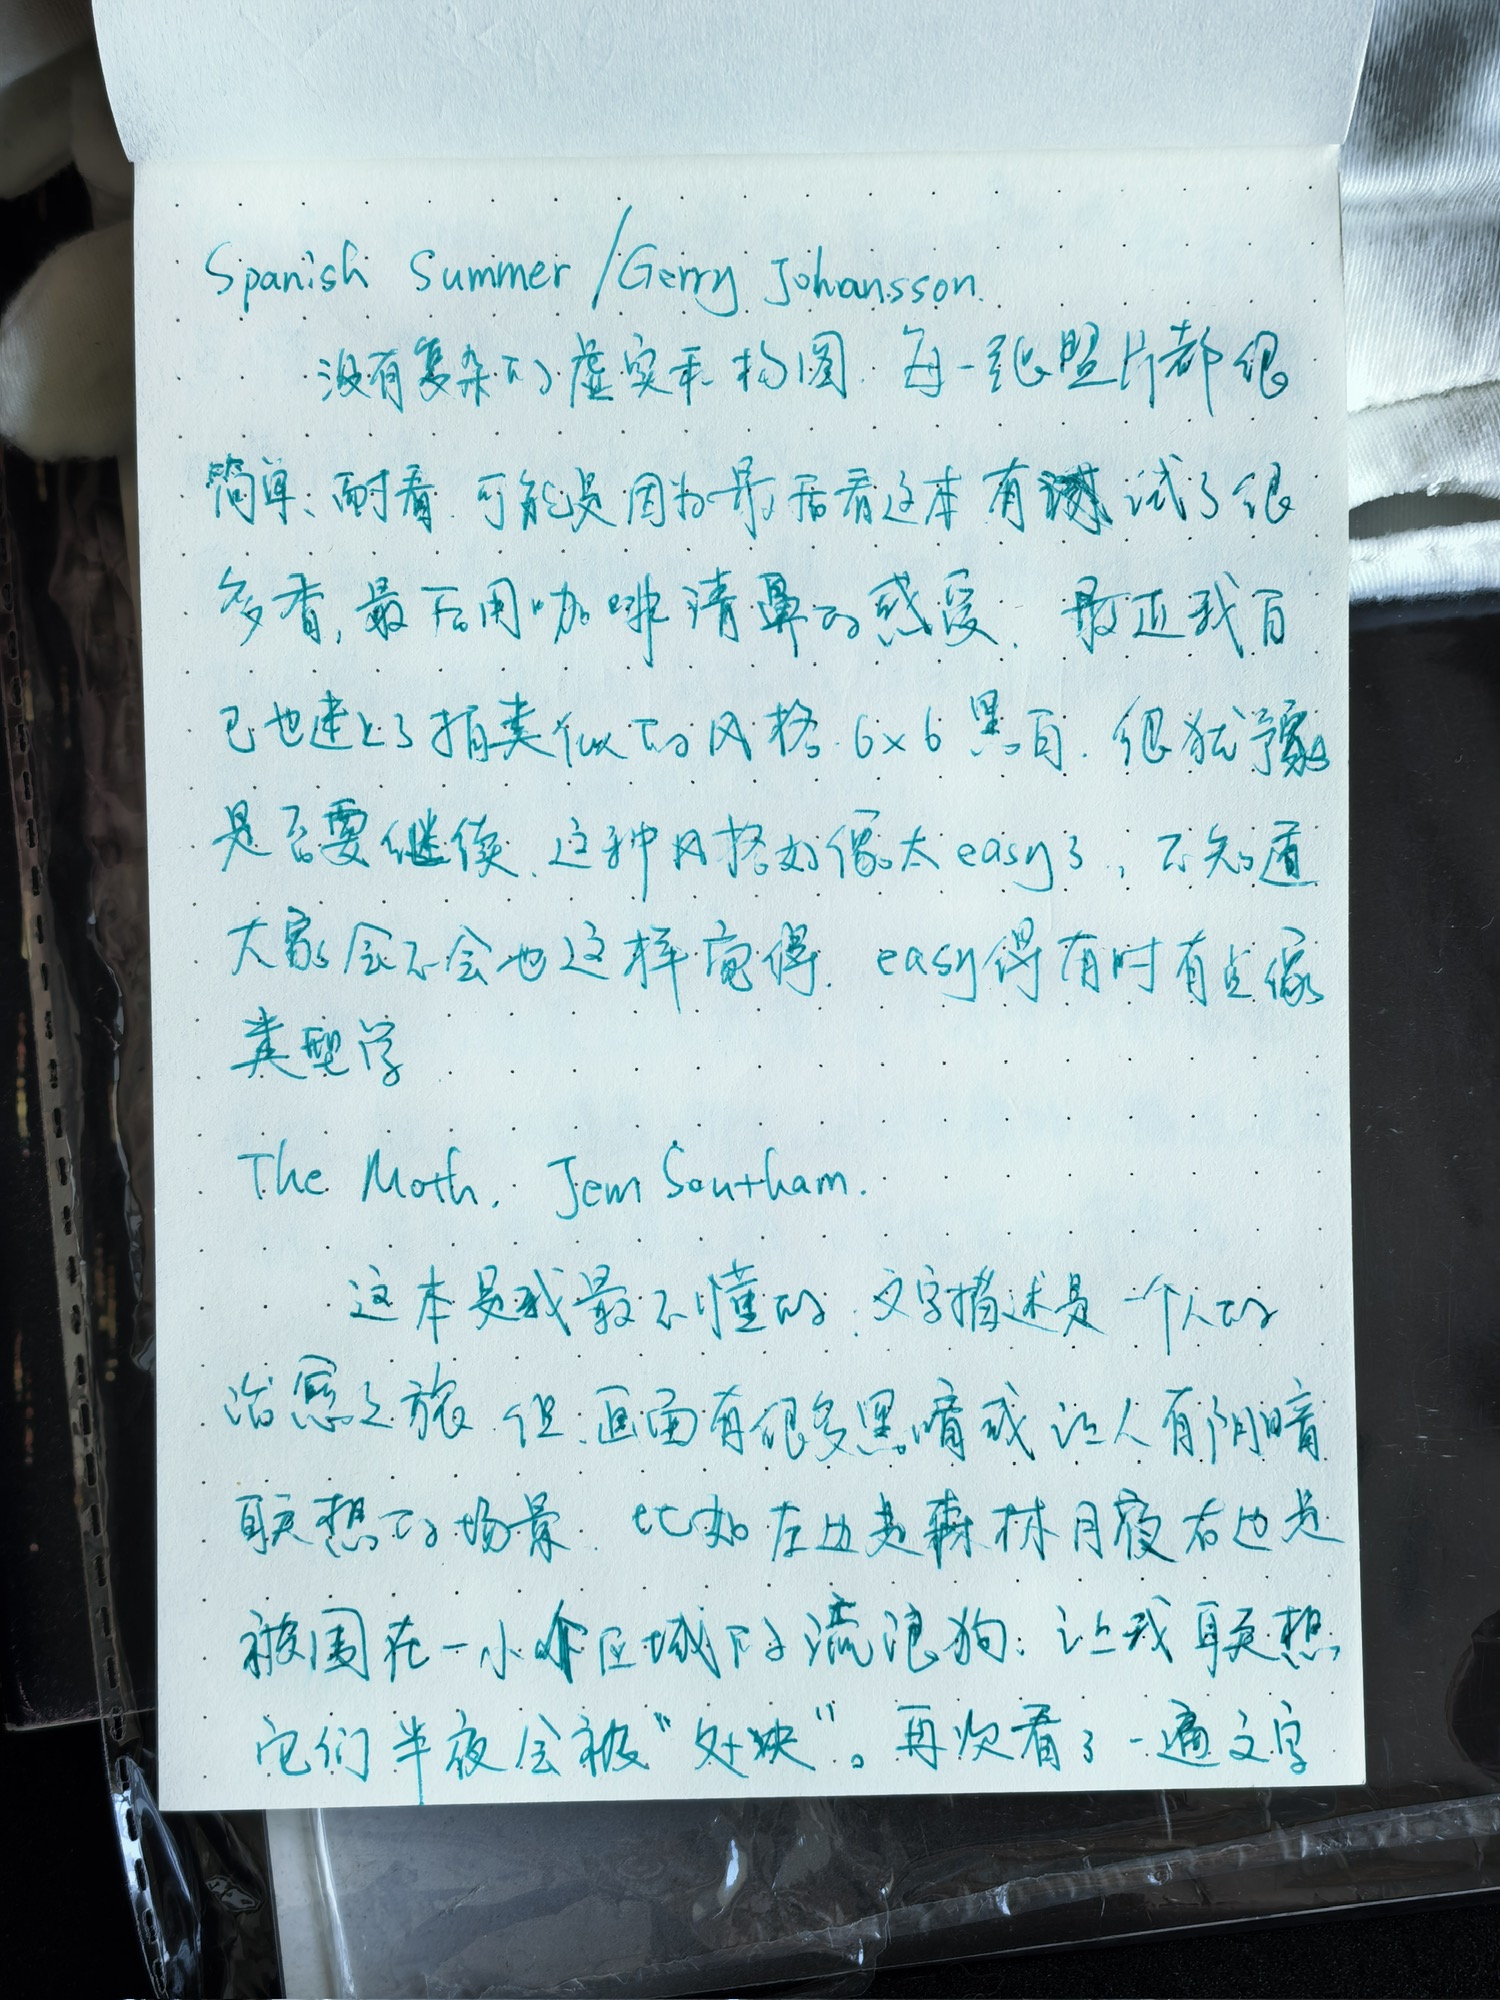 Spanish Summer/Gerry Johansson.
没有复杂的虚实和构图.每一张照片都很
简单、耐看.可能是因为最后看这本有试了很
多香,最后用咖啡清鼻的感受.最近我自
己也迷上了拍类似的风格.6x6黑白.很犹豫
是否要继续.这种风格好像太easy了,不知道
大家会不会也这样觉得.easy得有时有点像
类型学
The Moth. Jem Southam.
这本是我最不懂的.文字描述是一个人的
治愈之旅 但画面有很多黑暗或让人有阴暗
联想的场景.比如左边是森林月夜右边是
被围在一小个区域的流浪狗.让我联想
它们半夜会被“处决”。再次看了一遍文字